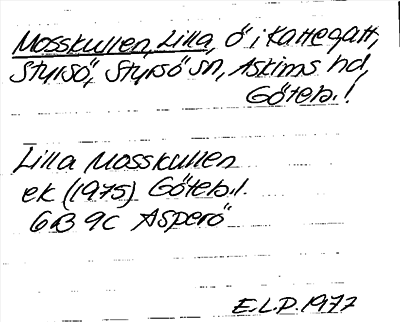 Mosskullen, Lilla, ö i Kattegatt,
Styrsö, Styrsö sn, Askims hd,
Göteb. l
Lilla Mosskullen
ek (1975) Göteb. l.
6B 9c Asperö
E.L.P. 1977